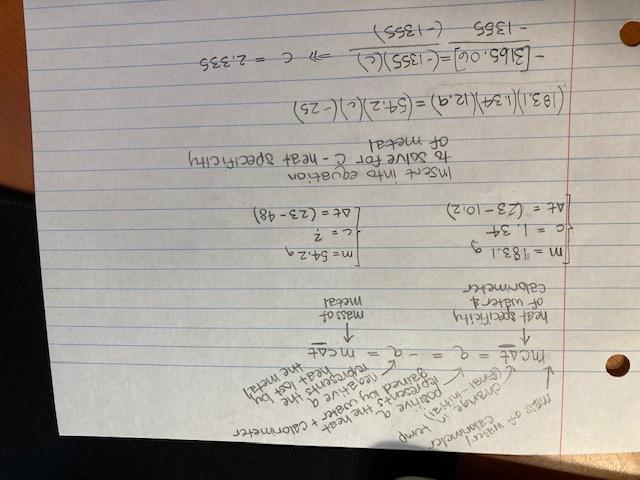 mass of water/
calorimeter
change in temp
(final-initial)
positive q
represents the heat
gained by water + calorimeter
negative q
represents the
heat lost by
the metal
mcΔt = q = -q = mcΔt
heat specificity
of water &
calorimeter
mass of
metal
m = 183.1 g
c = 1.34
Δt = (23-10.2)
m = 54.2g
c = ?
Δt = (23-48)
Insert into equation
to solve for C - heat specificity
of metal
(183.1)(1.34)(12.9) = (54.2)(c)(-25)
-[3165.06] = (-1355)(c) => c = 2.335
-1355 (-1355)